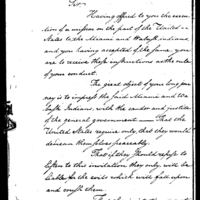 Sir,
Having offered to you the execu-
tion of a mission on the part of the United
States to the Miami and Wabash indians
and you having accepted of the same, you are
to receive these instructions as the rules
of your conduct.
The great object of your jour-
ney is to impress the said Miami and Wa-
bash Indians, with the candor and justice
of the general government — That the
United States require only, that they should
demean themselves peaceably.
That if they should refuse to
listen to this invitation they only, will be
liable for the evils which will fall upon
and crush them.